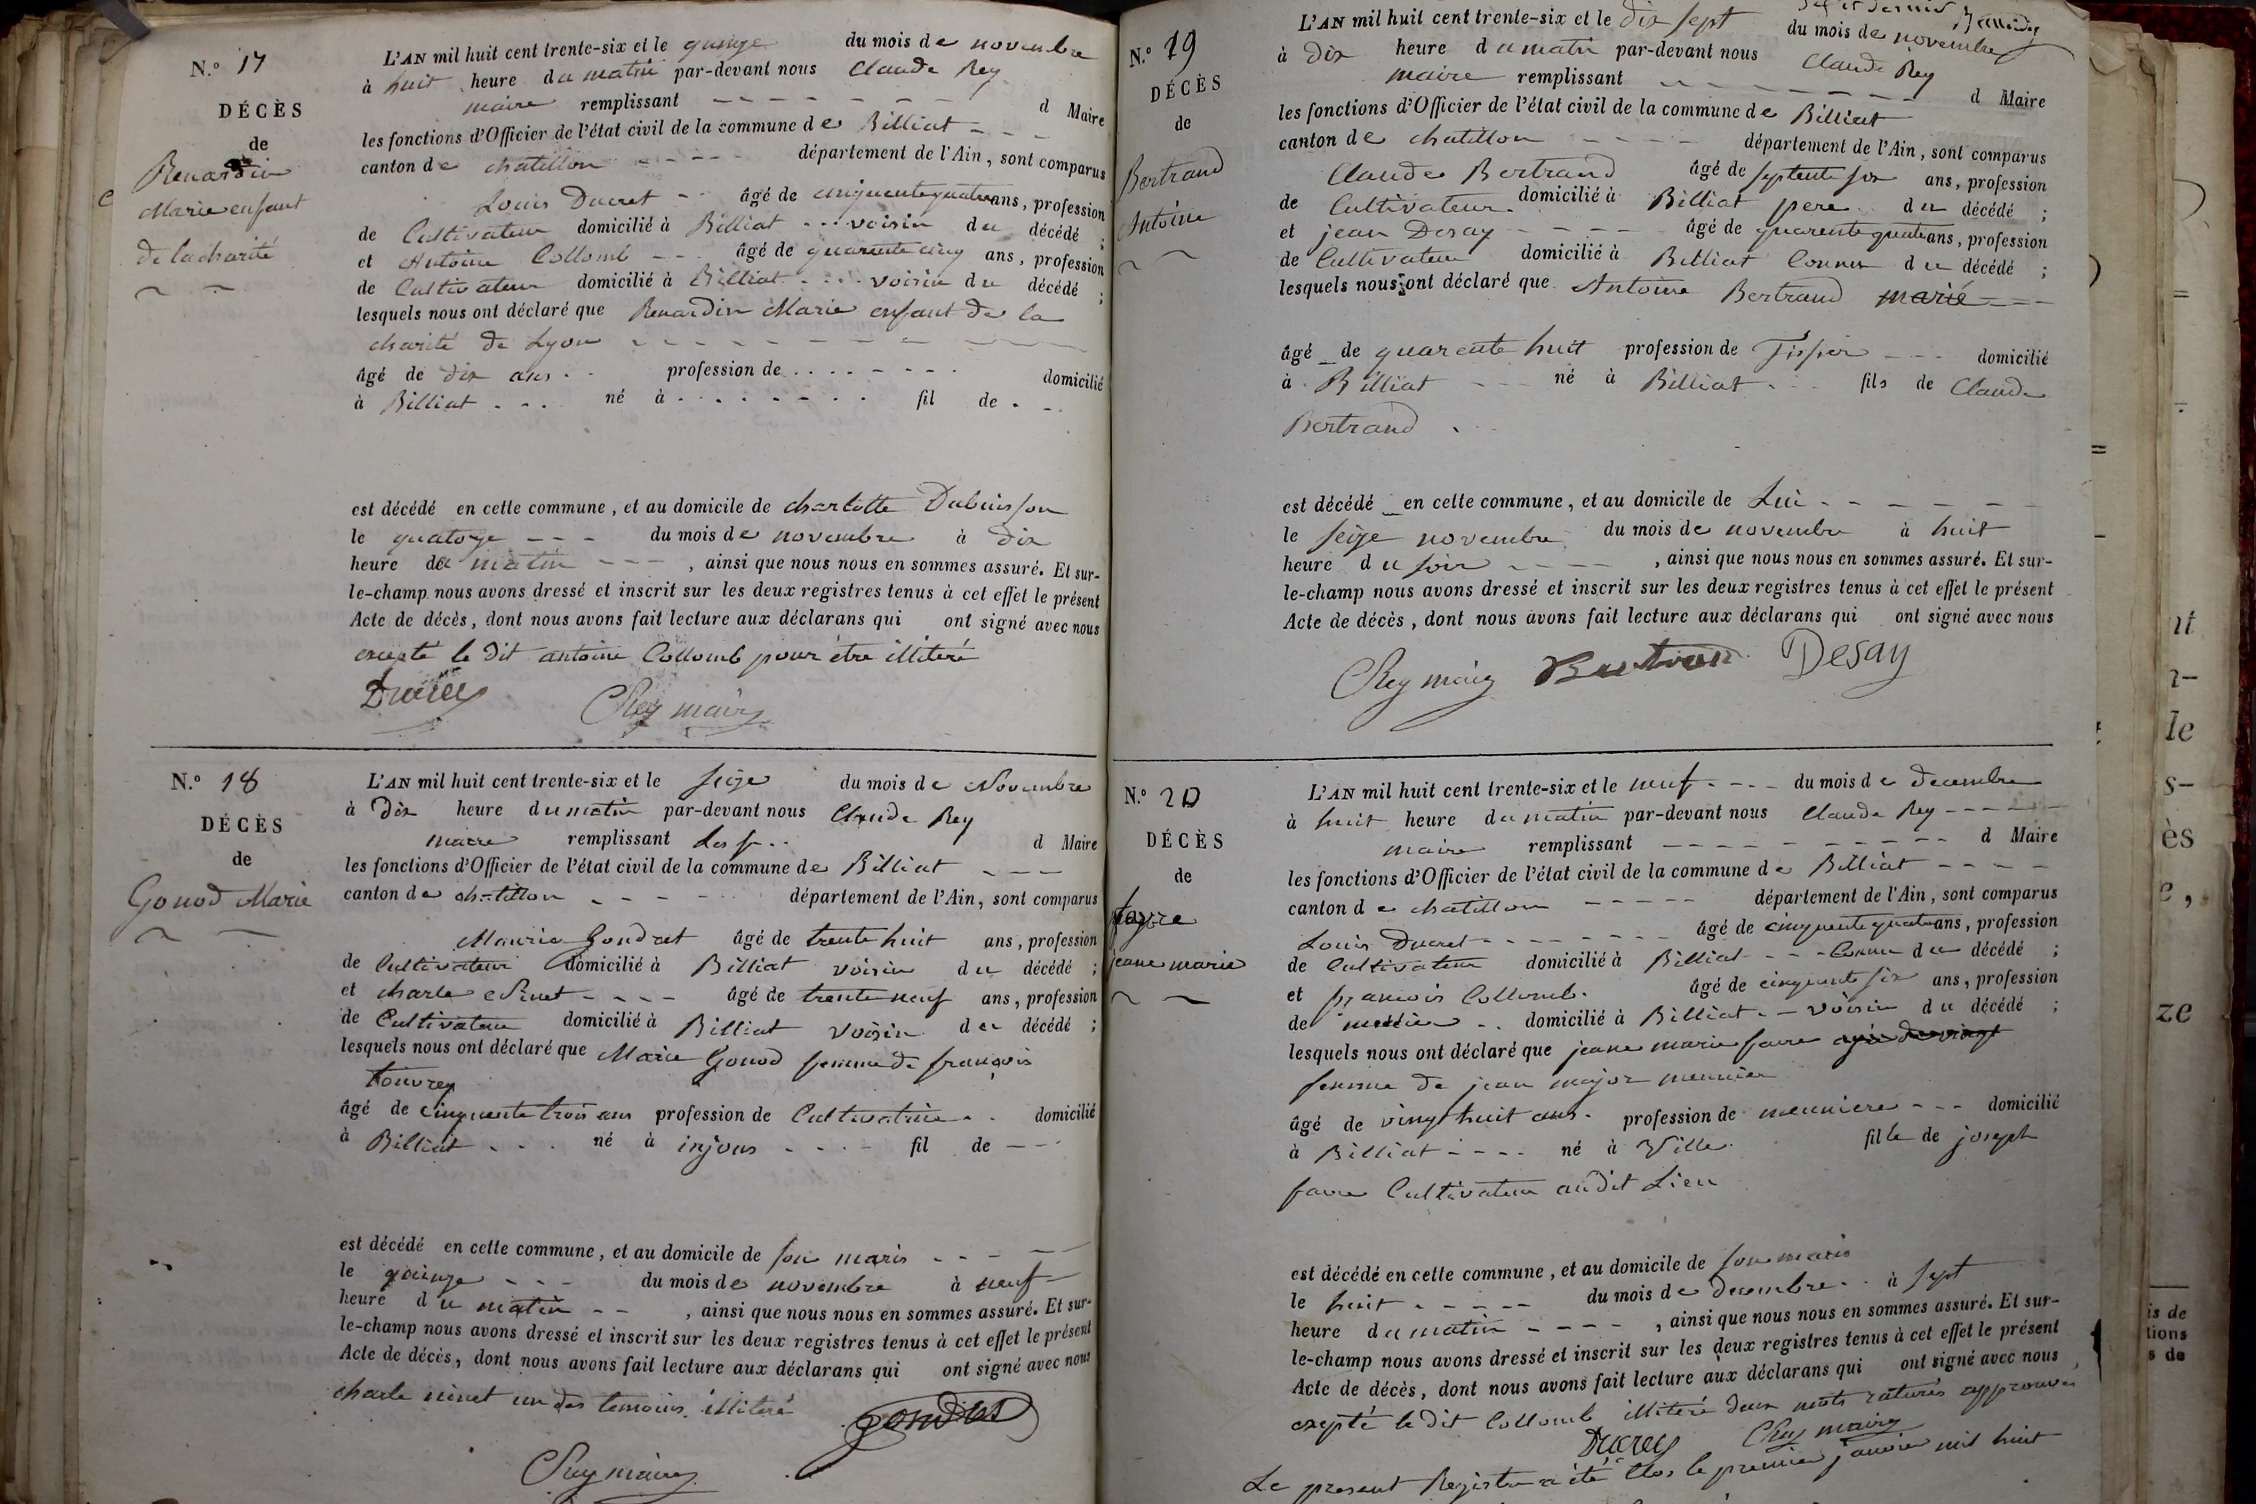 N.° 17
DÉCÈS
de
Renardin
Marie enfant
de la charité
L'AN mil huit cent trente-six et le quinze du mois de novembre
à huit heure du matin par-devant nous Claude Rey
maire remplissant d Maire
les fonctions d'Officier de l'état civil de la commune de Billiat
canton de chatillon département de l'Ain, sont comparus
Louis Ducret âgé de cinquente quatre ans, profession
de Cultivateur domicilié à Billiat voisin du décédé ;
et Antoine Collomb âgé de quarente cinq ans, profession
de Cultivateur domicilié à Billiat voisin du décédé ;
lesquels nous ont déclaré que Renardin Marie enfant de la
charité de Lyon
âgé de dix ans profession de domicilié
à Billiat né à fil de
est décédé en cette commune, et au domicile de charlotte Dubuisson
le quatorze du mois de novembre à dix
heure du matin, ainsi que nous nous en sommes assuré. Et sur-
le-champ nous avons dressé et inscrit sur les deux registres tenus à cet effet le présent
Acte de décès, dont nous avons fait lecture aux déclarans qui ont signé avec nous
excepté le dit antoine Collomb pour être illiteré
Ducret CRey maire
N.° 18
DÉCÈS
de
Gonod Marie
L'AN mil huit cent trente-six et le seize du mois de Novembre
à Dix heure du matin par-devant nous Claude Rey
maire remplissant Les f d Maire
les fonctions d'Officier de l'état civil de la commune de Billiat
canton de chatillon département de l'Ain, sont comparus
Maurice Gondret âgé de trente huit ans, profession
de Cultivateur domicilié à Billiat voisin du décédé ;
et charle Ninet âgé de trente neuf ans, profession
de Cultivateur domicilié à Billiat voisin du décédé ;
lesquels nous ont déclaré que Marie Gonod femme de françois
Touvrey
âgé de cinquente trois ans profession de Cultivatrice domicilié
à Billiat né à injous fil de
est décédé en cette commune, et au domicile de son maris
le quinze du mois de novembre à neuf
heure du matin, ainsi que nous nous en sommes assuré. Et sur-
le-champ nous avons dressé et inscrit sur les deux registres tenus à cet effet le présent
Acte de décès, dont nous avons fait lecture aux déclarans qui ont signé avec nous
charle ninet un des temoins illiteré
gondret
CRey maire
N.° 19
DÉCÈS
de
Bertrand
Antoine
L'AN mil huit cent trente-six et le dix sept du mois de novembre
à dix heure du matin par-devant nous Claude Rey
maire remplissant d Maire
les fonctions d'Officier de l'état civil de la commune de Billiat
canton de chatillon département de l'Ain, sont comparus
Claude Bertrand âgé de septente six ans, profession
de Cultivateur domicilié à Billiat pere du décédé ;
et jean Desay âgé de quarente quatre ans, profession
de Cultivateur domicilié à Billiat Connu du décédé ;
lesquels nous ont déclaré que Antoine Bertrand marié
âgé de quarente huit profession de Tissier domicilié
à Billiat né à Billiat fils de Claude
Bertrand
est décédé en cette commune, et au domicile de Lui
le seize novembre du mois de novembre à huit
heure du soir, ainsi que nous nous en sommes assuré. Et sur-
le-champ nous avons dressé et inscrit sur les deux registres tenus à cet effet le présent
Acte de décès, dont nous avons fait lecture aux déclarans qui ont signé avec nous
CRey maire Bertran Desay
N.° 20
DÉCÈS
de
favre
jeane marie
L'AN mil huit cent trente-six et le neuf du mois de decembre
à huit heure du matin par-devant nous Claude Rey
maire remplissant d Maire
les fonctions d'Officier de l'état civil de la commune de Billiat
canton de chatillon département de l'Ain, sont comparus
Louis Ducret âgé de cinquente quatre ans, profession
de Cultivateur domicilié à Billiat Connu du décédé ;
et françois Collomb âgé de cinquente six ans, profession
de domicilié à Billiat voisin du décédé ;
lesquels nous ont déclaré que jeane marie favre
femme de jean major meunier
âgé de vingt huit ans profession de meuniere domicilié
à Billiat né à Ville fille de joseph
favre Cultivateur audit Lieu
est décédé en cette commune, et au domicile de son maris
le huit du mois de decembre à sept
heure du matin, ainsi que nous nous en sommes assuré. Et sur-
le-champ nous avons dressé et inscrit sur les deux registres tenus à cet effet le présent
Acte de décès, dont nous avons fait lecture aux déclarans qui ont signé avec nous
exepté le dit Collomb illiteré deux mots raturés approuvés
Ducret CRey maire
Le present Registre a été Clos le premier janvier mil huit